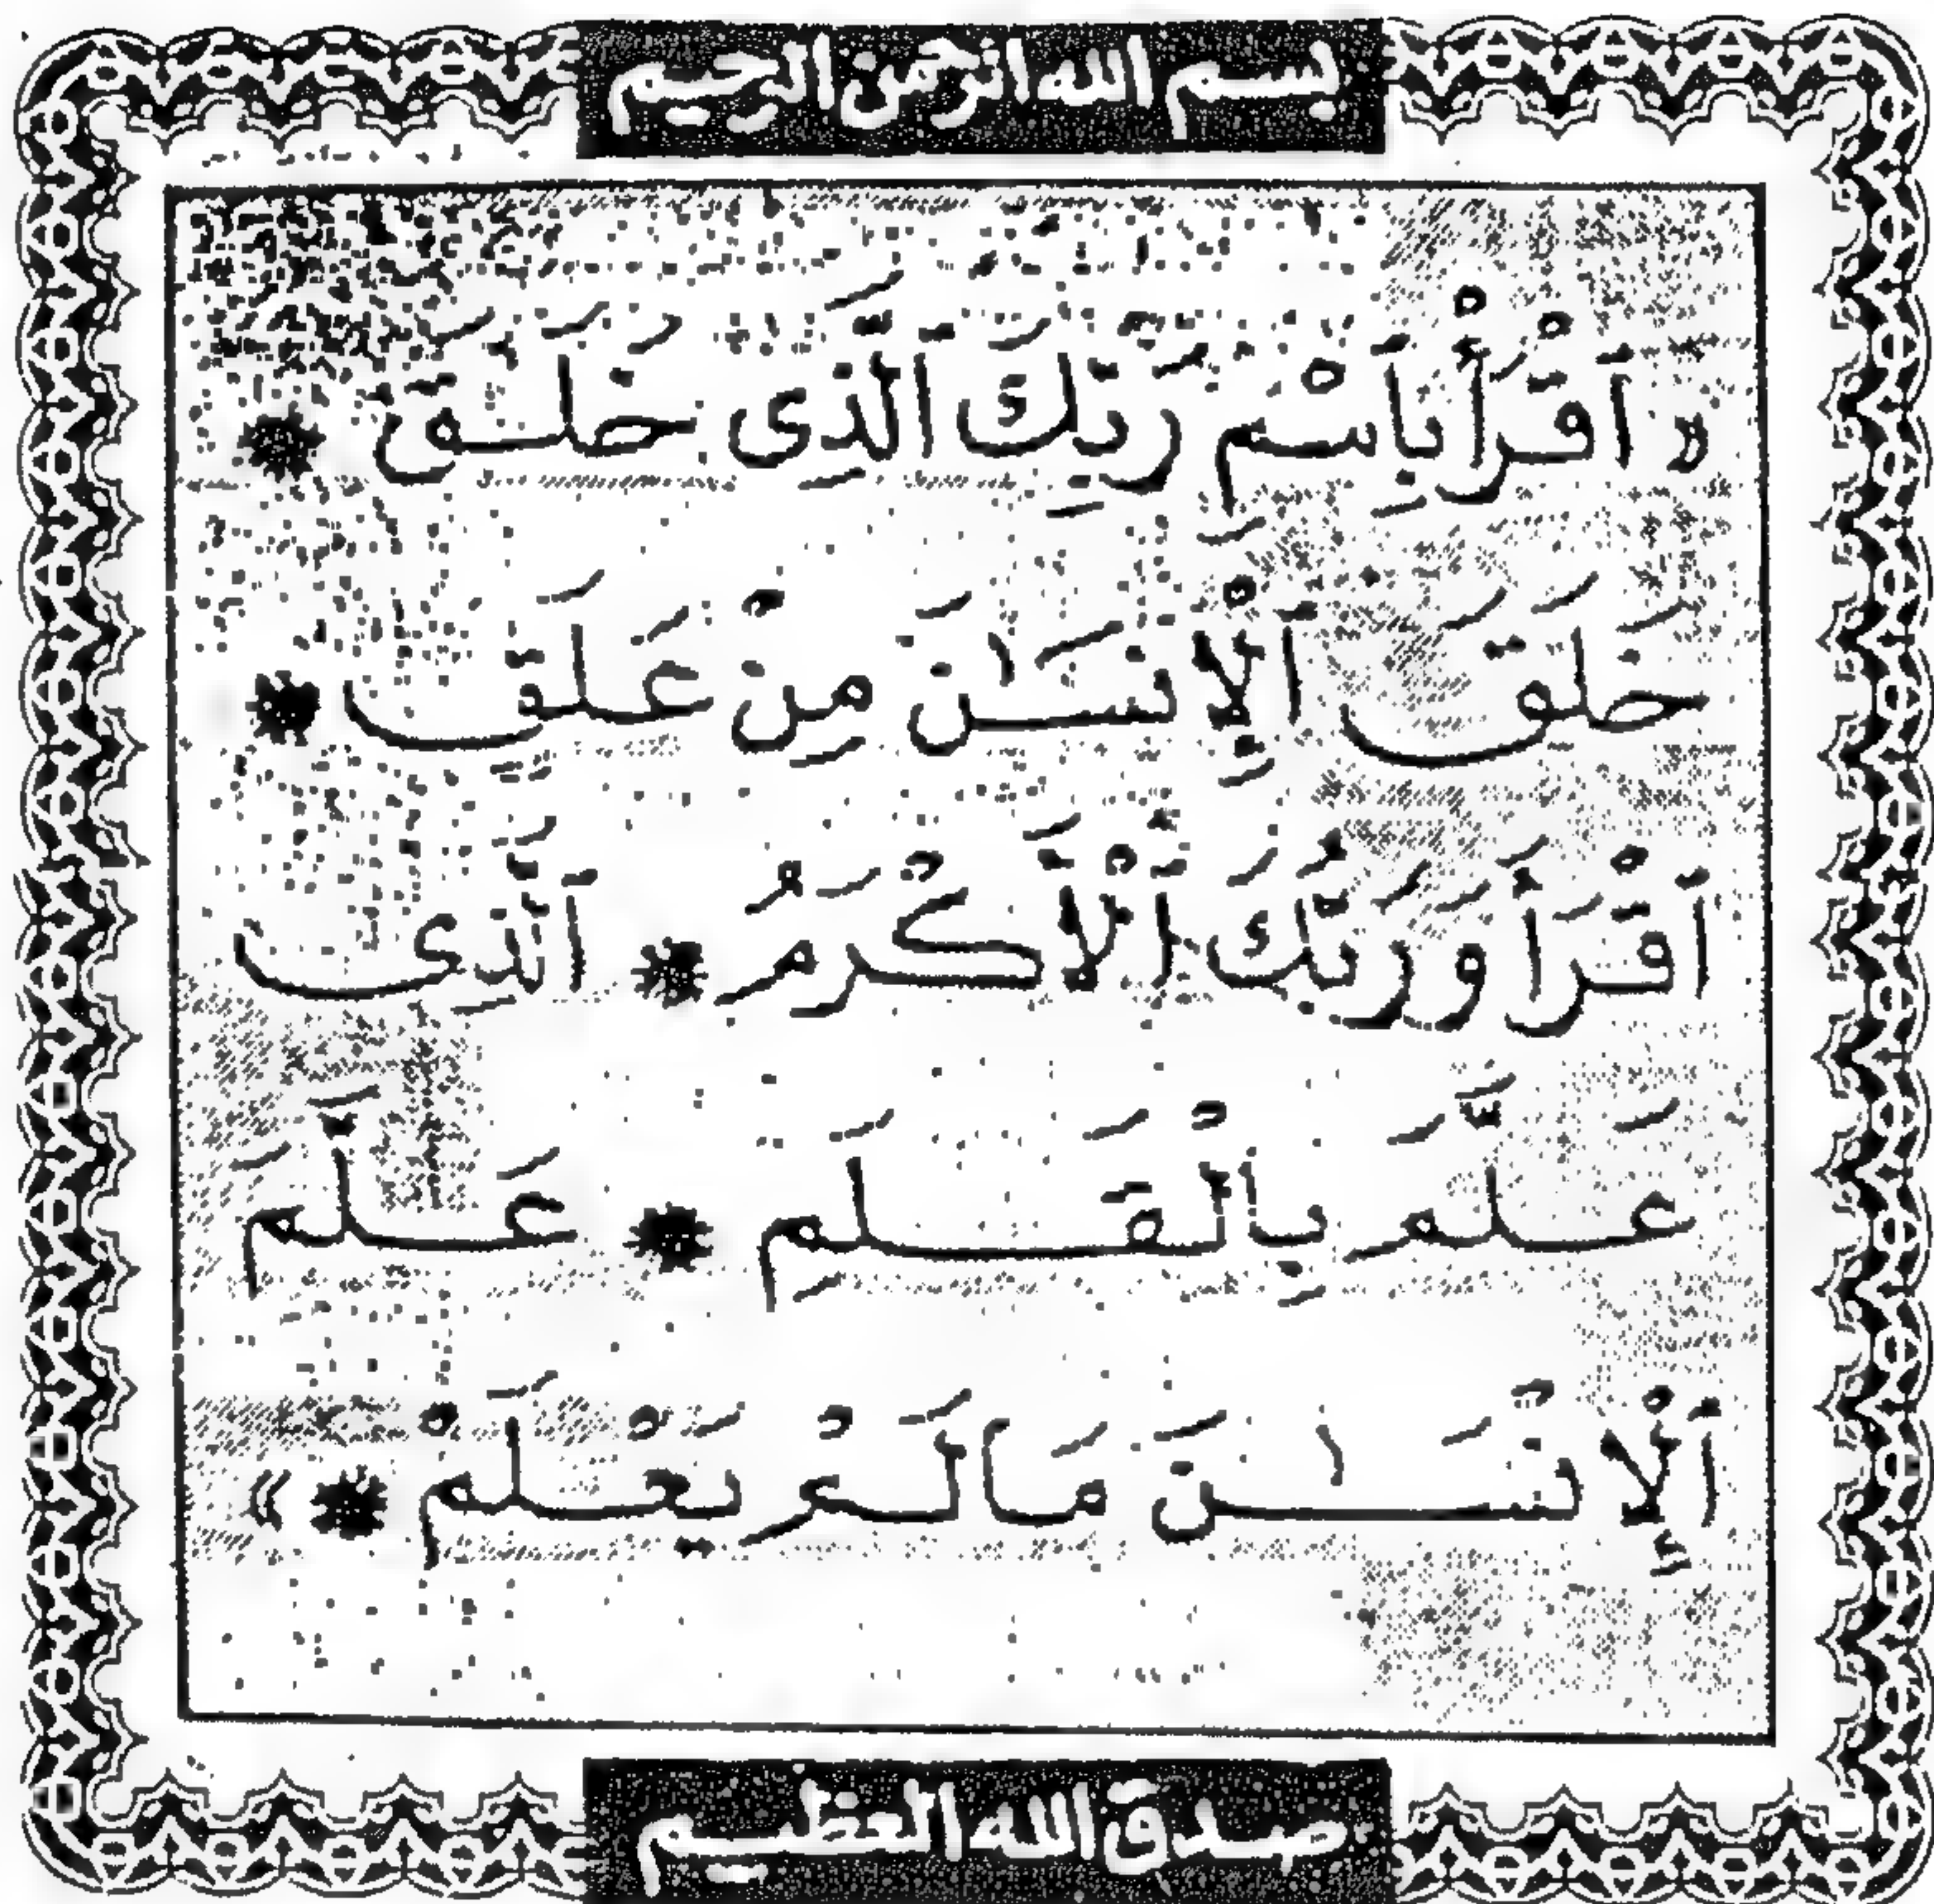 بسم الله الرحمن الرحيم
« ٱقْرَأْ بِٱسْمِ رَبِّكَ ٱلَّذِى خَلَقَ *
خَلَقَ ٱلْإِنسَٰنَ مِنْ عَلَقٍ *
ٱقْرَأْ وَرَبُّكَ ٱلْأَكْرَمُ * ٱلَّذِى
عَلَّمَ بِٱلْقَلَمِ * عَلَّمَ
ٱلْإِنسَٰنَ مَا لَمْ يَعْلَمْ * »
صدق الله العظيم